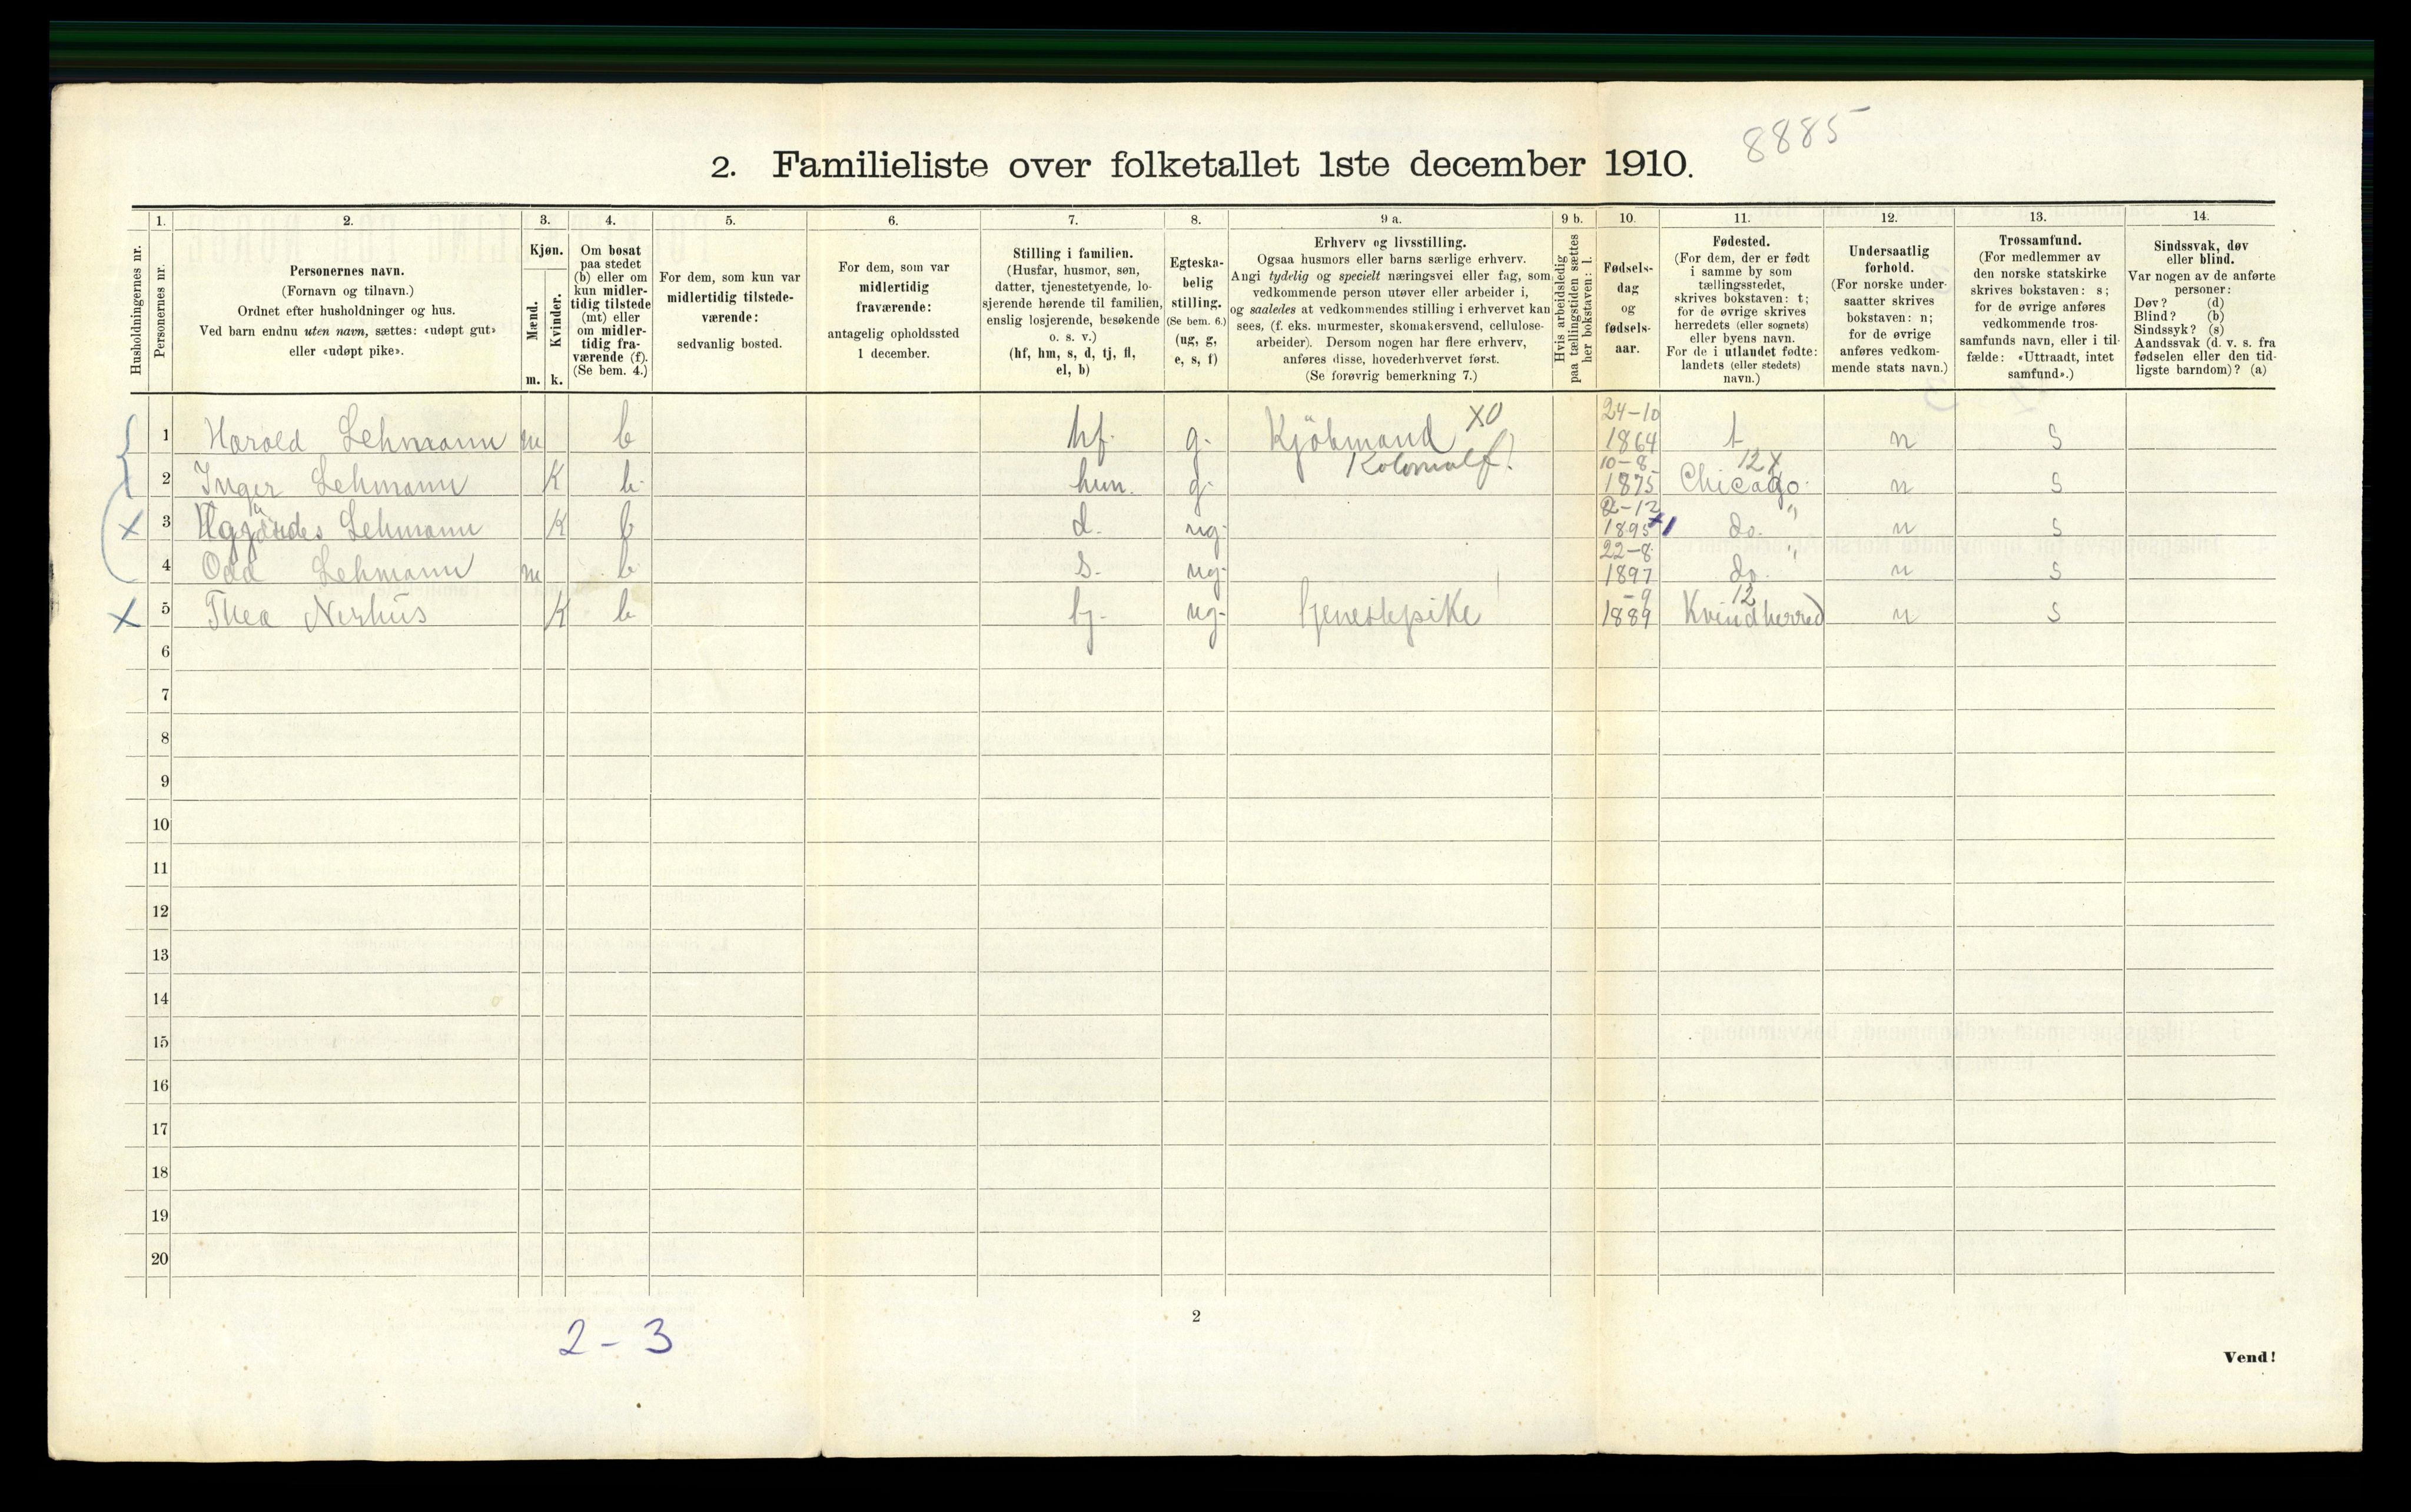 8885
2. Familieliste over folketallet 1ste december 1910.
1. 2. 3. 4. 5. 6. 7. 8. 9 a. 9 b. 10. 11. 12. 13. 14.
Husholdningernes nr.
Personernes nr.
Personernes navn.
(Fornavn og tilnavn.)
Ordnet efter husholdninger og hus.
Ved barn endnu uten navn, sættes: «udøpt gut»
eller «udøpt pike».
Kjøn.
Mænd.
Kvinder.
m. k.
Om bosat
paa stedet
(b) eller om
kun midler-
tidig tilstede
(mt) eller
om midler-
tidig fra-
værende (f).
(Se bem. 4.)
For dem, som kun var
midlertidig tilstede-
værende:
sedvanlig bosted.
For dem, som var
midlertidig
fraværende:
antagelig opholdssted
1 december.
Stilling i familien.
(Husfar, husmor, søn,
datter, tjenestetyende, lo-
sjerende hørende til familien,
enslig losjerende, besøkende
o. s. v.)
(hf, hm, s, d, tj, fl,
el, b)
Egteska-
belig
stilling.
(Se bem. 6.)
(ug, g,
e, s, f)
Erhverv og livsstilling.
Ogsaa husmors eller barns særlige erhverv.
Angi tydelig og specielt næringsvei eller fag, som
vedkommende person utøver eller arbeider i,
og saaledes at vedkommendes stilling i erhvervet kan
sees, (f. eks. murmester, skomakersvend, cellulose-
arbeider). Dersom nogen har flere erhverv,
anføres disse, hovederhvervet først.
(Se forøvrig bemerkning 7.)
Hvis arbeidsledig
paa tællingstiden sættes
her bokstaven: l.
Fødsels-
dag
og
fødsels-
aar.
Fødested.
(For dem, der er født
i samme by som
tællingsstedet,
skrives bokstaven: t;
for de øvrige skrives
herredets (eller sognets)
eller byens navn.
For de i utlandet fødte:
landets (eller stedets)
navn.)
Undersaatlig
forhold.
(For norske under-
saatter skrives
bokstaven: n;
for de øvrige
anføres vedkom-
mende stats navn.)
Trossamfund.
(For medlemmer av
den norske statskirke
skrives bokstaven: s;
for de øvrige anføres
vedkommende tros-
samfunds navn, eller i til-
fælde: «Uttraadt, intet
samfund».)
Sindssvak, døv
eller blind.
Var nogen av de anførte
personer:
Døv? (d)
Blind? (b)
Sindssyk? (s)
Aandssvak (d. v. s. fra
fødselen eller den tid-
ligste barndom)? (a)
1 Harald Lehmann m b hf. g. Kjöbmand XO Kolonialf. 24-10 1864 t n s
2 Inger Lehmann K b hm. g. 10-8 1875 12X Chicago n s
3 Lehmann K b d. ug. 2-12 1895 do. " n s
4 Odd Lehmann m b s. ug. 22-8 1897 do. " n s
5 Thea Nerhus K b tj. ug. tjenestepike -9 1889 12 Kvindherred n s
6
7
8
9
10
11
12
13
14
15
16
17
18
19
20
2
2-3
Vend!